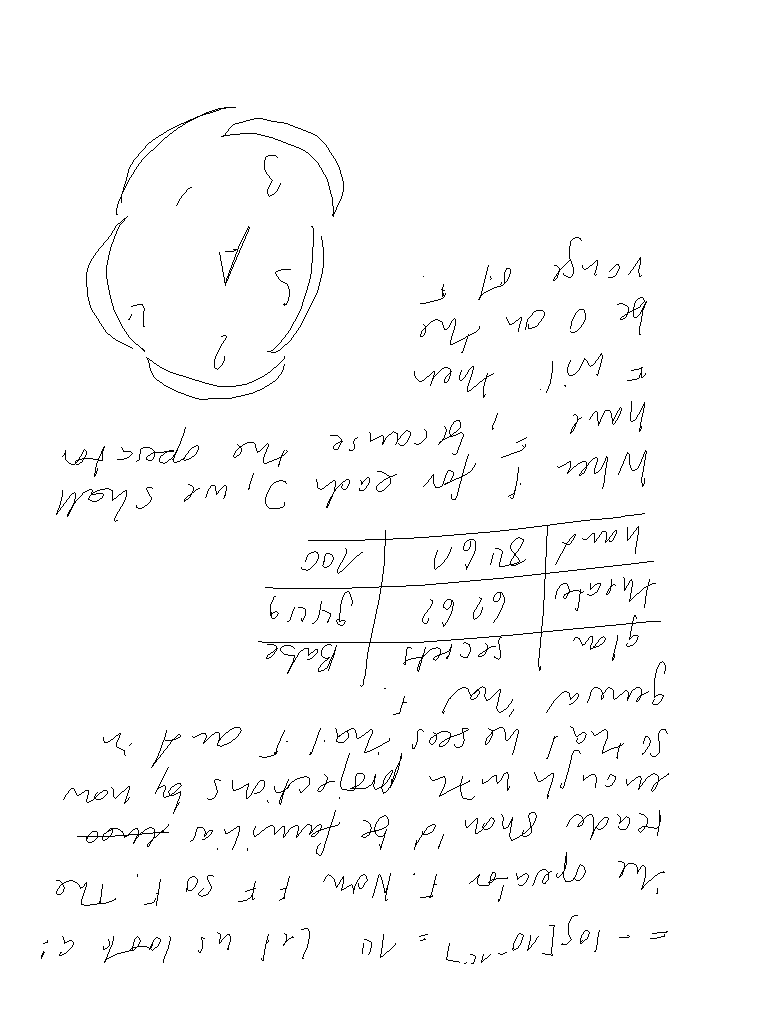 = - log[10 = 10 Let us look at
the operator F. Now F F so F. The
reade shou'd be familiar
enough with projections by now
so that he sees that F and in
genera that F.
glan secrets Babe
threate 6262 9449
hand 8461 100
When for each J, we shall
have because the operator
F will then
be 0 on the
range of F.
2
4
5
3